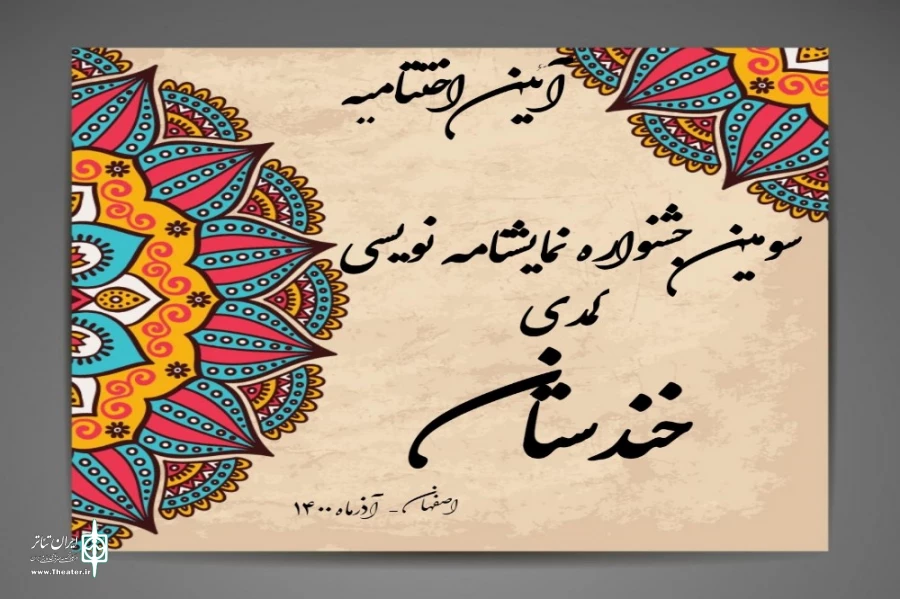 آئین اختتامیه
سومین جشنواره نمایشنامه نویسی
کمدی
خندستان
اصفهان - آذرماه ۱۴۰۰
ایران تئاتر
www.Theater.ir